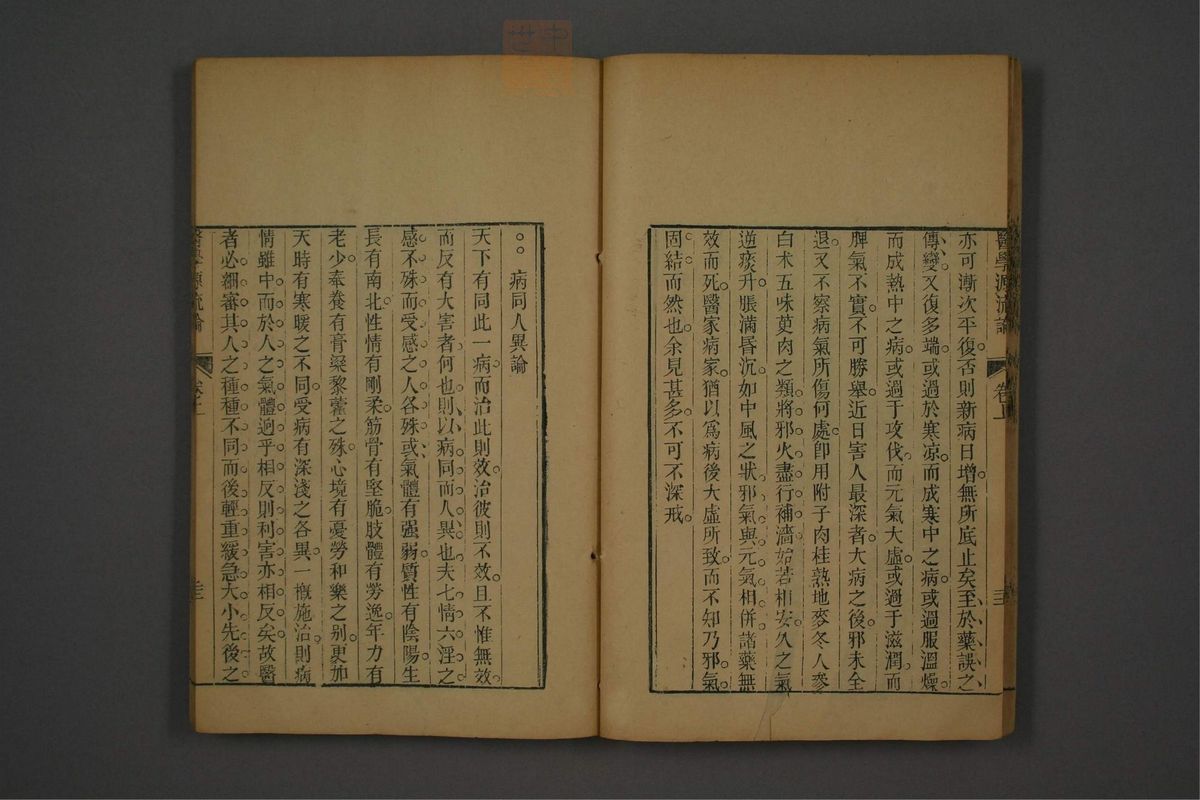 醫學源流論 卷上
亦可漸次平復否則新病日增無所底止矣至於藥誤之
傳變又復多端或過於寒凉而成寒中之病或過服溫燥
而成熱中之病或過于攻伐而元氣大虛或過于滋潤而
脾氣不實不可勝舉近日害人最深者大病之後邪未全
退又不察病氣所傷何處卽用附子肉桂熟地麥冬人參
白朮五味萸肉之類將邪火盡行補濇始若相安久之氣
逆痰升脹滿昏沉如中風之狀邪氣與元氣相併諸藥無
效而死醫家病家猶以爲病後大虛所致而不知乃邪氣
固結而然也余見甚多不可不深戒
病同人異論
天下有同此一病而治此則效治彼則不效且不惟無效
而反有大害者何也則以病同而人異也夫七情六淫之
感不殊而受感之人各殊或氣體有强弱質性有陰陽生
長有南北性情有剛柔筋骨有堅脆肢體有勞逸年力有
老少奉養有膏粱黎藿之殊心境有憂勞和樂之别更加
天時有寒暖之不同受病有深淺之各異一概施治則病
情雖中而於人之氣體迥乎相反則利害亦相反矣故醫
者必細審其人之種種不同而後輕重緩急大小先後之
醫學源流論 卷上